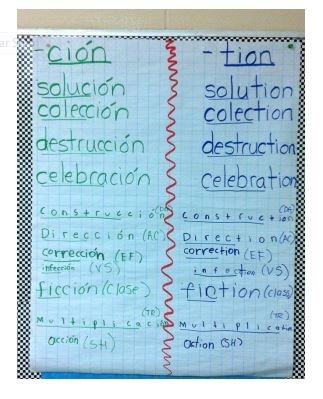 -ción
solución
colección
destrucción
celebración
Construcción (DA)
Dirección (AC)
corrección (EF)
infección (VS)
ficción (clase)
Multiplicación (TR)
acción (SH)
-tion
solution
colection
destruction
celebration
Construction (DA)
Direction (AC)
correction (EF)
infection (VS)
fiction (clase)
Multiplication (TR)
action (SH)